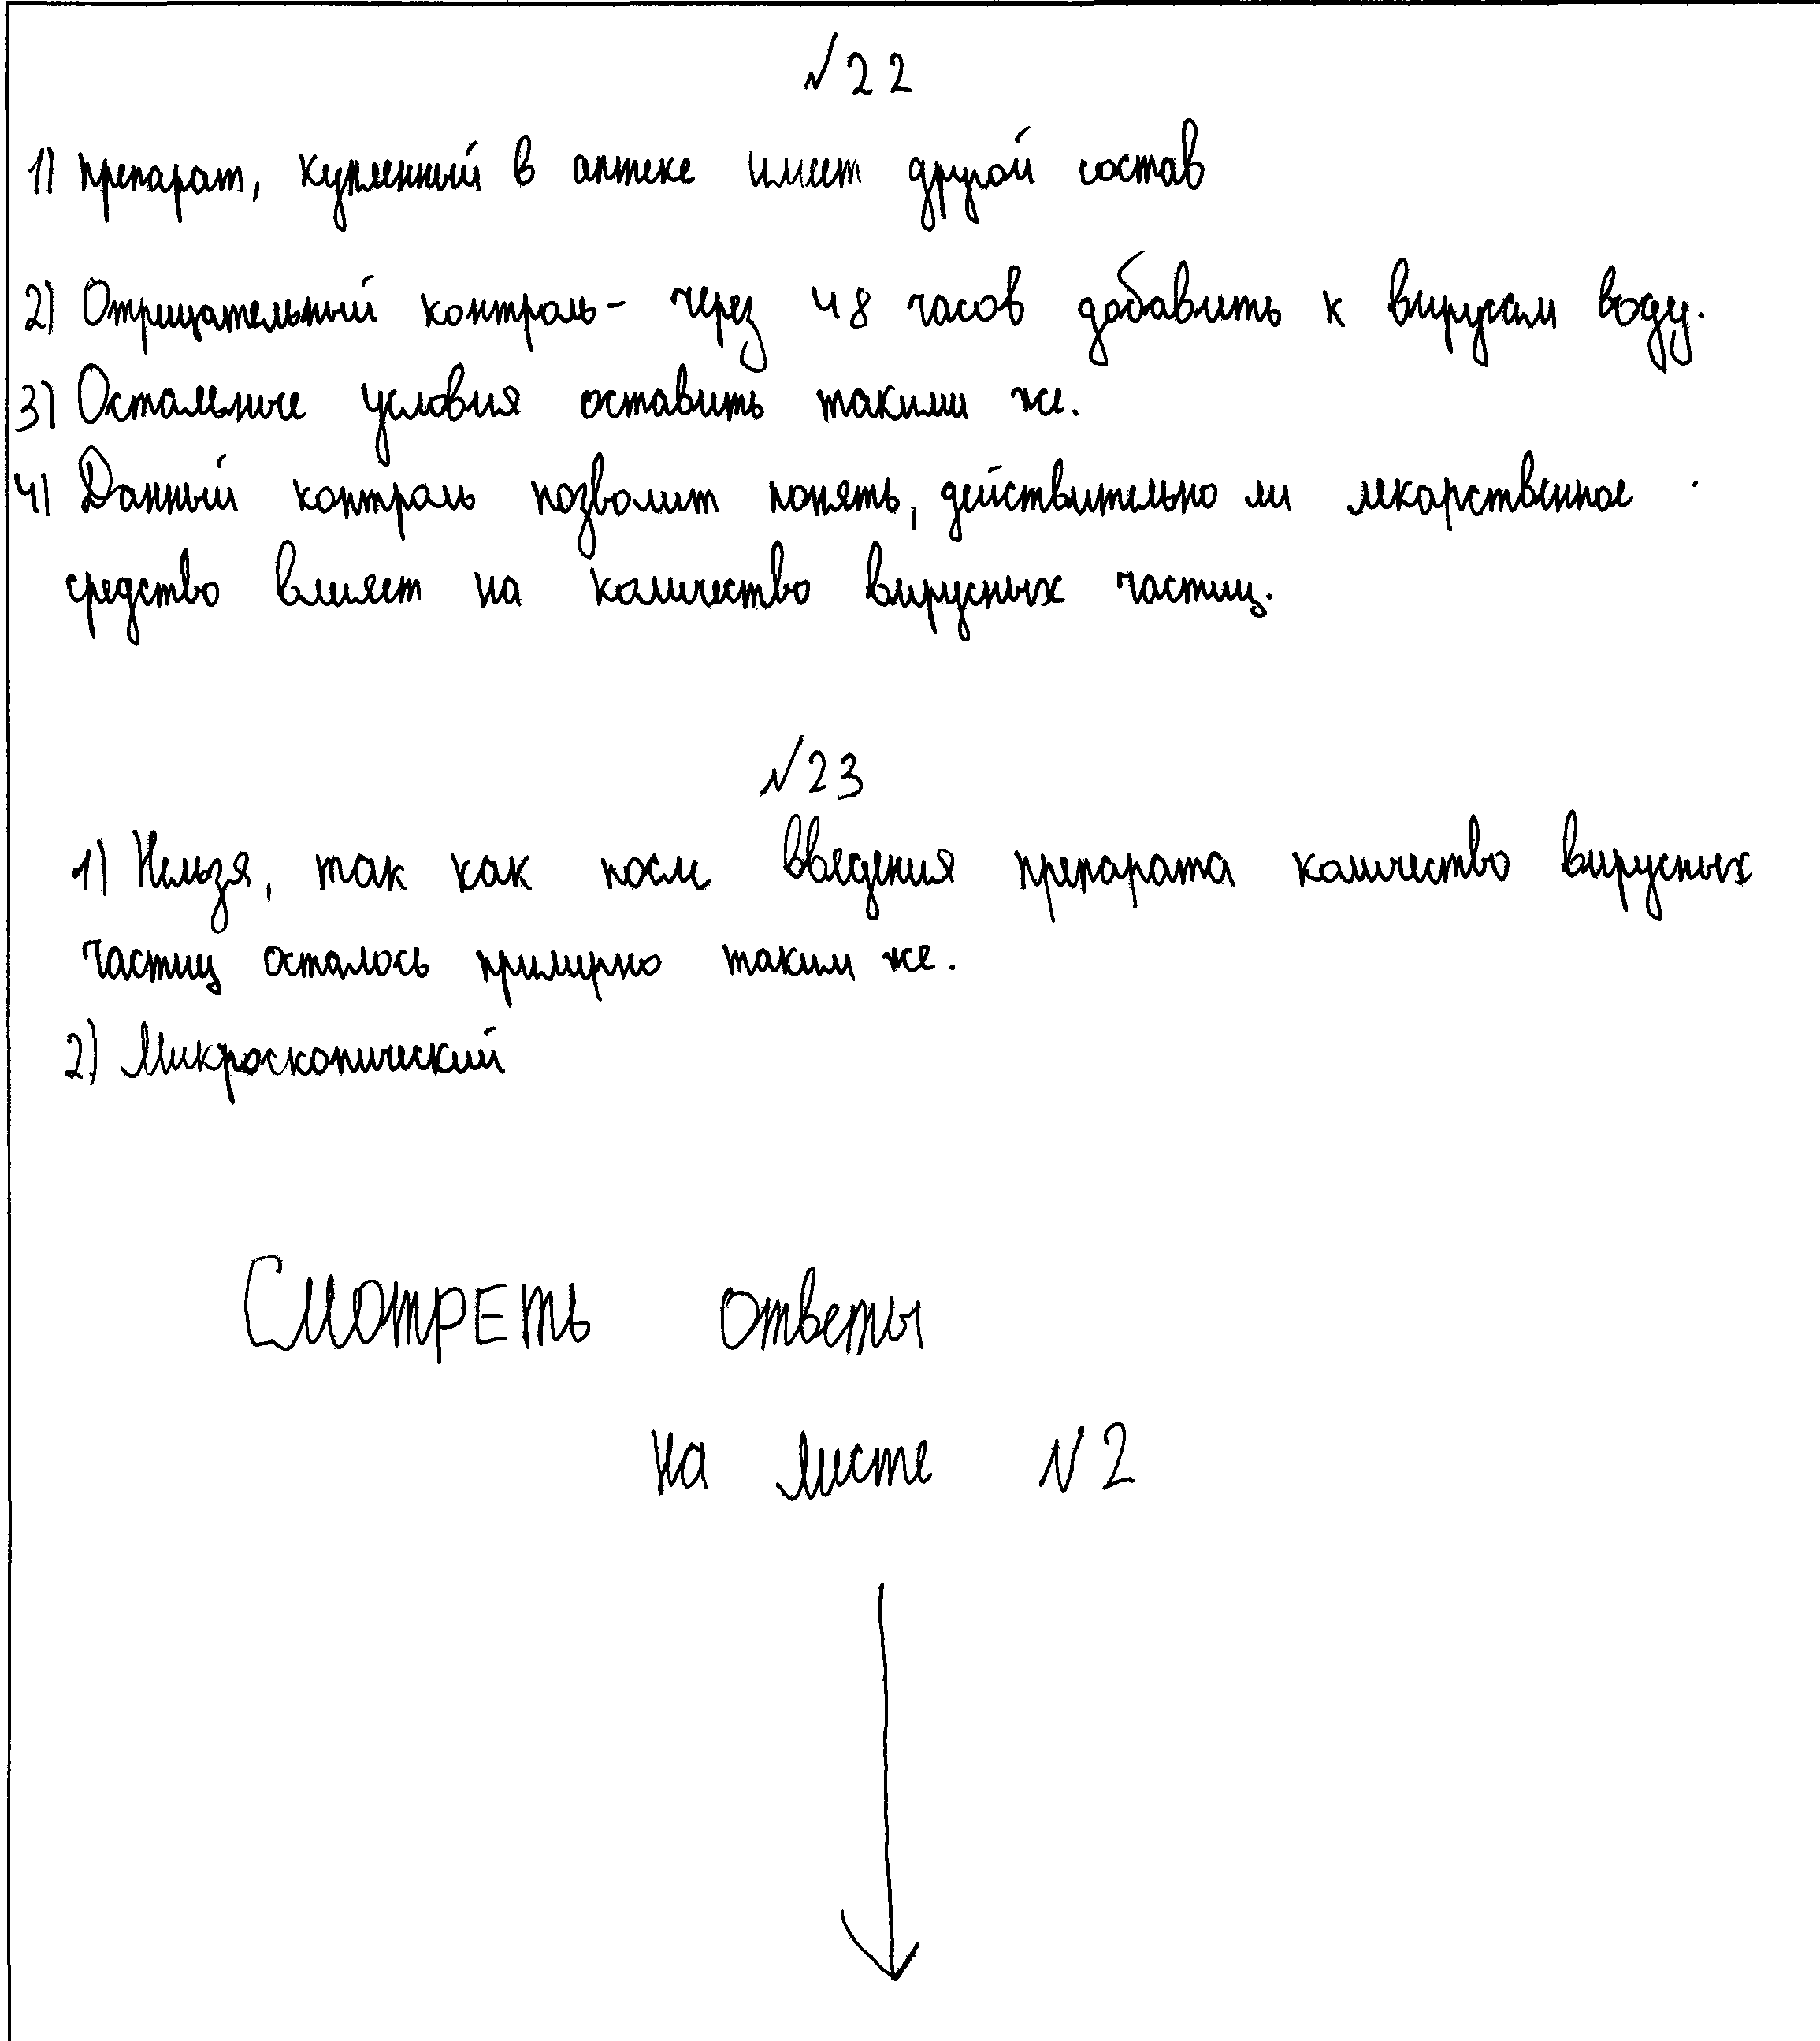 №22
1) препарат, купленный в аптеке имеет другой состав
2) Отрицательный контроль - через 48 часов добавить к вирусам воду.
3) Остальные условия оставить такими же.
4) Данный контроль позволит понять, действительно ли лекарственное
средство влияет на количество вирусных частиц.
№23
1) Нельзя, так как после введения препарата количество вирусных
частиц осталось примерно таким же.
2) Микроскопический
Смотреть ответы
на листе №2